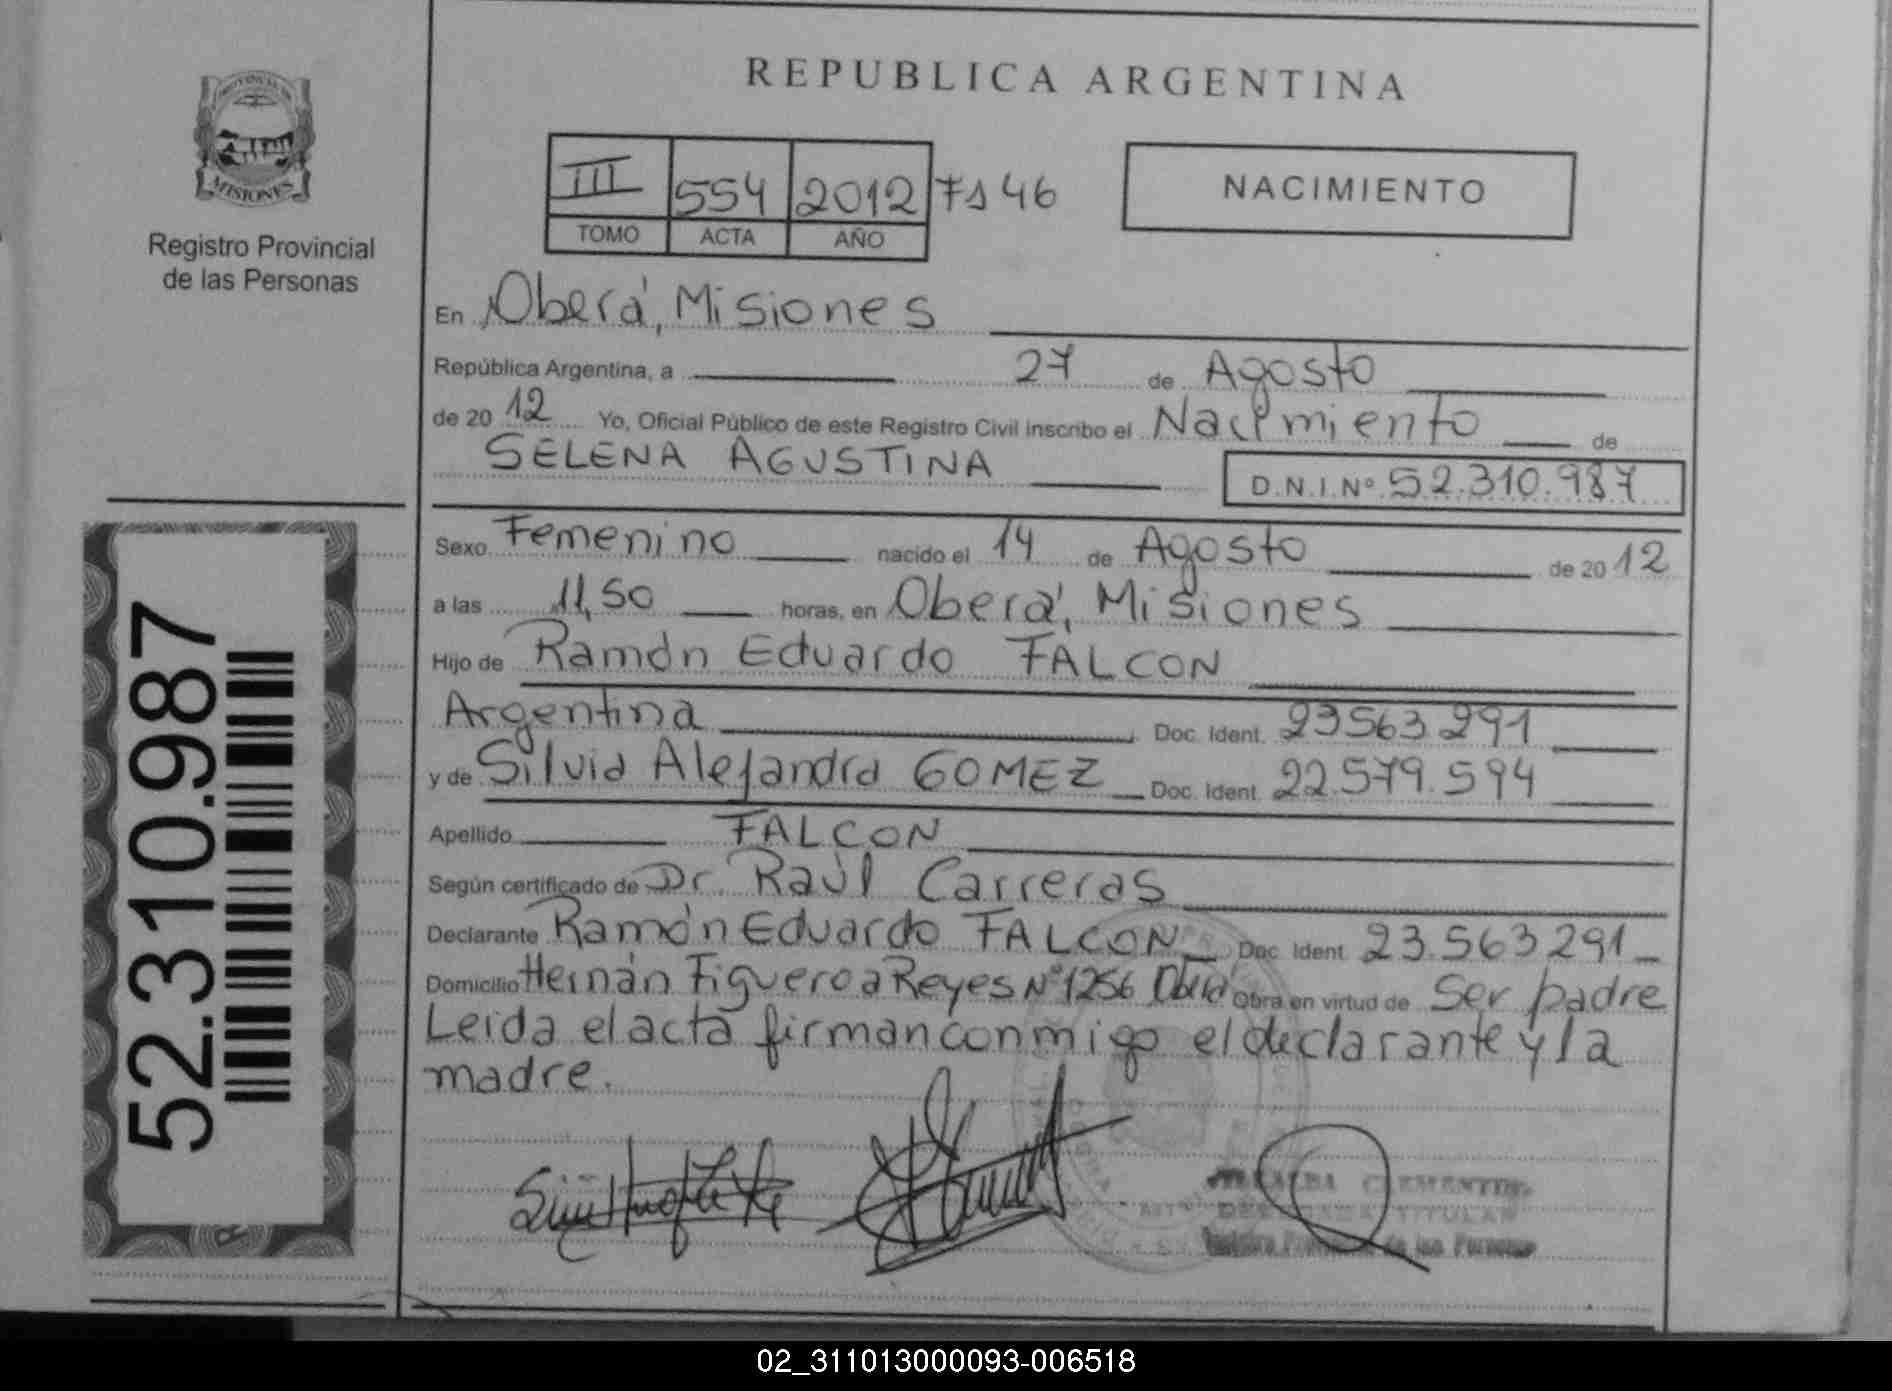 REPUBLICA ARGENTINA
MISIONES
Registro Provincial
de las Personas
III 554 2012 Fs 46
TOMO ACTA AÑO
NACIMIENTO
En Oberá, Misiones
República Argentina, a 27 de Agosto
de 20 12 Yo, Oficial Público de este Registro Civil inscribo el Nacimiento de
SELENA AGUSTINA D.N.I.Nº 52.310.987
Sexo Femenino nacido el 14 de Agosto de 20 12
a las 11,50 horas, en Oberá, Misiones
Hijo de Ramón Eduardo FALCON
Argentina Doc. Ident. 23563.291
y de Silvia Alejandra GOMEZ Doc. Ident. 22.579.594
Apellido FALCON
Según certificado de Dr. Raúl Carreras
Declarante Ramón Eduardo FALCON Doc. Ident. 23.563291
Domicilio Hernán Figueroa Reyes Nº 1256 Oberá Obra en virtud de Ser padre
Leída el acta firman conmigo el declarante y la
madre.
52.310.987
CLEMENTINA
TITULAR
Registro Provincial de las Personas
02_311013000093-006518